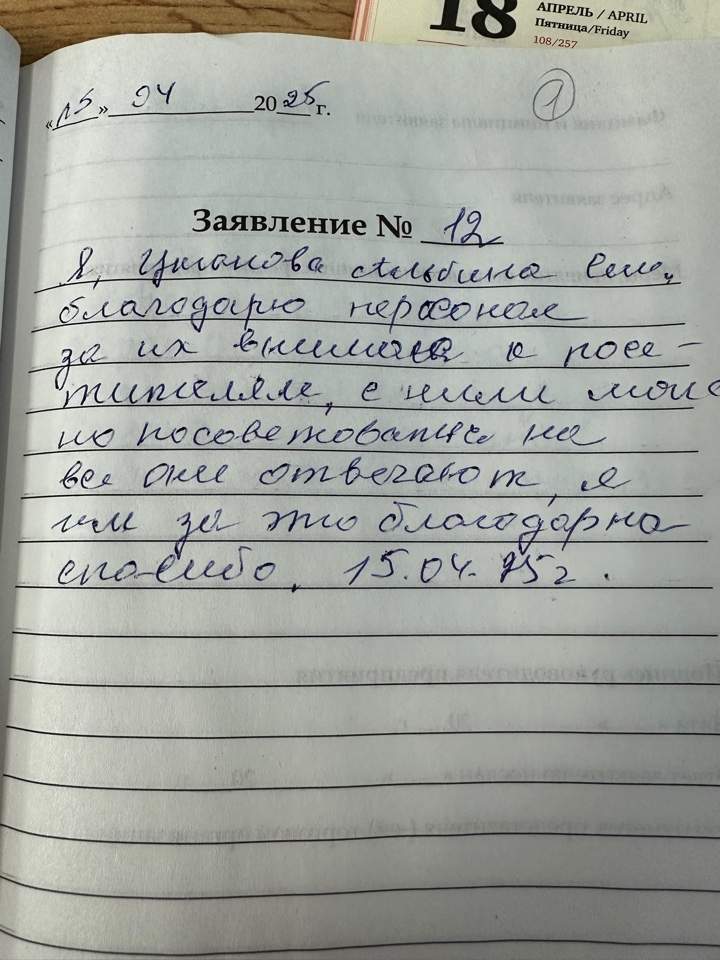 18
АПРЕЛЬ / APRIL
Пятница/Friday
108/257
«15» 04 2025 г.
1
Заявление № 12
Я, Альбина
благодарю персонал
за их к посе-
тителям, с ними мож
но посоветоваться на
все они отвечают, я
им за это благодарна
спасибо. 15.04.25г.